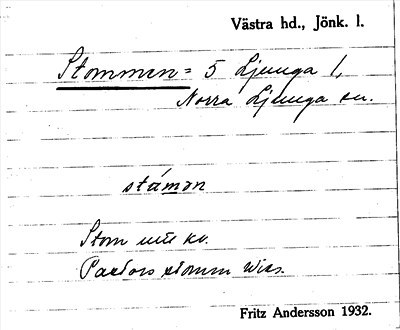 Västra hd., Jönk. l.
Stommen = 5 Ljunga 1,
Norra Ljunga sn.
stámən
Stom utü kv.
Pastors stomm Wies.
Fritz Andersson 1932.